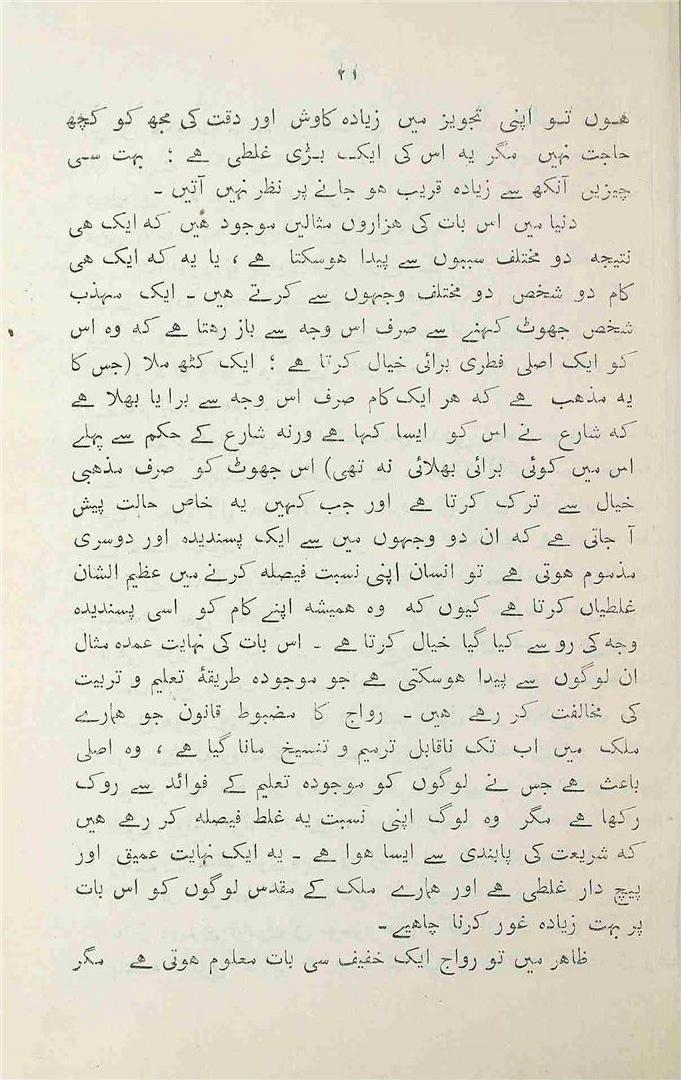 ۲۱
هوں تو اپنی تجویز میں زیادہ کاوش اور دقت کی مجھ کو کچھ
حاجت نہیں مگر یہ اس کی ایک بڑی غلطی ہے ؛ بہت سی
چیزیں آنکھ سے زیادہ قریب ہو جانے پر نظر نہیں آتیں ۔
دنیا میں اس بات کی ہزاروں مثالیں موجود ہیں کہ ایک ہی
نتیجہ دو مختلف سببوں سے پیدا ہوسکتا ہے ، یا یہ کہ ایک ہی
کام دو شخص دو مختلف وجہوں سے کرتے ہیں ۔ ایک مہذب
شخص جھوٹ کہنے سے صرف اس وجہ سے باز رہتا ہے کہ وہ اس
کو ایک اصلی فطری برائی خیال کرتا ہے ؛ ایک کٹھ ملا (جس کا
یہ مذہب ہے کہ ہر ایک کام صرف اس وجہ سے برا یا بھلا ہے
کہ شارع نے اس کو ایسا کہا ہے ورنہ شارع کے حکم سے پہلے
اس میں کوئی برائی بھلائی نہ تھی) اس جھوٹ کو صرف مذہبی
خیال سے ترک کرتا ہے اور جب کہیں یہ خاص حالت پیش
آ جاتی ہے کہ ان دو وجہوں میں سے ایک پسندیدہ اور دوسری
مذموم ہوتی ہے تو انسان اپنی نسبت فیصلہ کرنے میں عظیم الشان
غلطیاں کرتا ہے کیوں کہ وہ ہمیشہ اپنے کام کو اسی پسندیدہ
وجہ کی رو سے کیا گیا خیال کرتا ہے ۔ اس بات کی نہایت عمدہ مثال
ان لوگوں سے پیدا ہوسکتی ہے جو موجودہ طریقۂ تعلیم و تربیت
کی مخالفت کر رہے ہیں ۔ رواج کا مضبوط قانون جو ہمارے
ملک میں اب تک ناقابل ترمیم و تنسیخ مانا گیا ہے ، وہ اصلی
باعث ہے جس نے لوگوں کو موجودہ تعلیم کے فوائد سے روک
رکھا ہے مگر وہ لوگ اپنی نسبت یہ غلط فیصلہ کر رہے ہیں
کہ شریعت کی پابندی سے ایسا ہوا ہے ۔ یہ ایک نہایت عمیق اور
پیچ دار غلطی ہے اور ہمارے ملک کے مقدس لوگوں کو اس بات
پر بہت زیادہ غور کرنا چاہیے ۔
ظاہر میں تو رواج ایک خفیف سی بات معلوم ہوتی ہے مگر